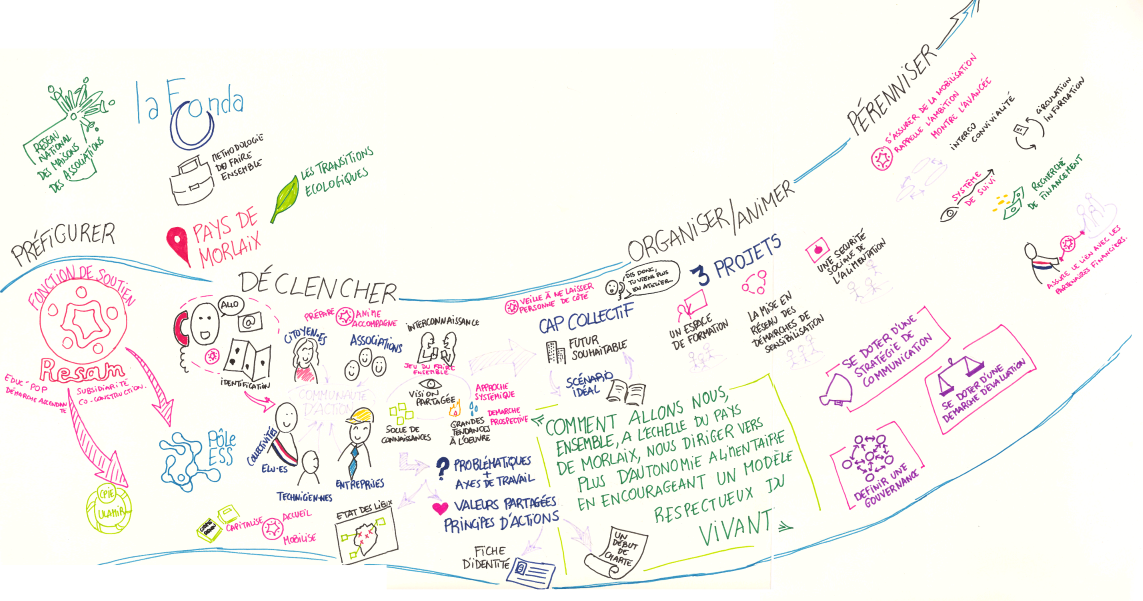 RÉSEAU
NATIONAL
DES MAISONS
DES ASSOCIATIONS
la Fonda
METHODOLOGIE
DU FAIRE
ENSEMBLE
LES TRANSITIONS
ECOLOGIQUES
PAYS DE
MORLAIX
PRÉFIGURER
FONCTION DE SOUTIEN
Resam
EDUC POP
SUBSIDIARITÉ
CO-CONSTRUCTION.
PÔLE
ESS
CPIE
ULAMIR
DÉCLENCHER
ALLO
@
IDENTIFICATION
PRÉPARE
ANIME
ACCOMPAGNE
CITOYEN·ES
ASSOCIATIONS
COMMUNAUTÉ
D'ACTION
COLLECTIVITÉS
ELU·ES
TECHNICIEN·NES
ENTREPRISES
CAPITALISE
ACCUEIL
MOBILISE
INTERCONNAISSANCE
JEU DU FAIRE
ENSEMBLE
VISION
PARTAGÉE
APPROCHE
SYSTÉMIQUE
SOCLE DE
CONNAISSANCES
GRANDES
TENDANCES
À L'OEUVRE
DEMARCHE
PROSPECTIVE
? PROBLÉMATIQUES
+
AXES DE TRAVAIL
VALEURS PARTAGÉES
PRINCIPES D'ACTIONS
ETAT DES LIEUX
FICHE
D'IDENTITÉ
UN
DÉBUT
DE
CHARTE
ORGANISER/ANIMER
DIS DONC,
TU VIENS PLUS
EN ATELIER
VEILLE À NE LAISSER
PERSONNE DE CÔTÉ
CAP COLLECTIF
FUTUR
SOUHAITABLE
SCÉNARIO
IDÉAL
COMMENT ALLONS NOUS,
ENSEMBLE, A L'ÉCHELLE DU PAYS
DE MORLAIX, NOUS DIRIGER VERS
PLUS D'AUTONOMIE ALIMENTAIRE
EN ENCOURAGEANT UN MODÈLE
RESPECTUEUX DU
VIVANT
3 PROJETS
UN ESPACE
DE FORMATION
LA MISE EN
RÉSEAU DES
DÉMARCHES DE
SENSIBILISATION
UNE SECURITÉ
SOCIALE DE
L'ALIMENTATION
SE DOTER D'UNE
STRATÉGIE DE
COMMUNICATION
SE DOTER D'UNE
DÉMARCHE D'ÉVALUATION
DEFINIR UNE
GOUVERNANCE
PÉRENNISER
S'ASSURER DE LA MOBILISATION
RAPPELLE L'AMBITION
MONTRE L'AVANCÉE
INTERCO
CONVIVIALITÉ
CIRCULATION
INFORMATION
SYSTÈME
DE SUIVI
RECHERCHE
DE FINANCEMENT
ASSURE LE LIEN AVEC LES
PARTENAIRES FINANCIERS.